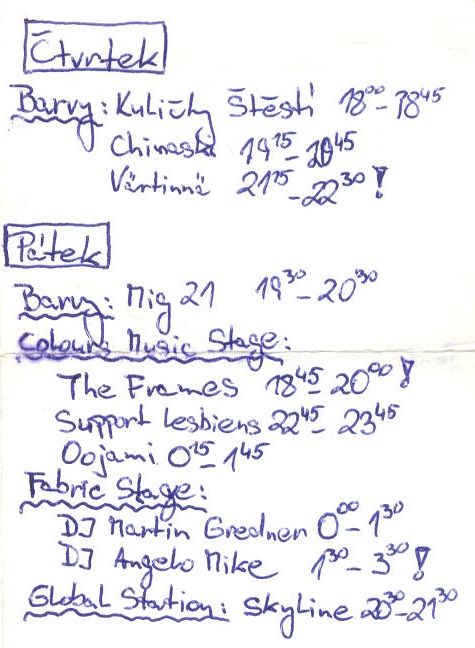 Čtvrtek
Barvy: Kuličky Štěstí 18⁰⁰-18⁴⁵
Chinaski 19¹⁵-20⁴⁵
Värtinnä 21¹⁵-22³⁰!
Pátek
Barvy: Mig 21 19³⁰-20³⁰
Colours Music Stage:
The Frames 18⁴⁵-20⁰⁰!
Support Lesbiens 22⁴⁵-23⁴⁵
Oojami 0¹⁵-1⁴⁵
Fabric Stage:
DJ Martin 0⁰⁰-1³⁰
DJ Angelo Mike 1³⁰-3³⁰!
Global Station: Skyline 20³⁰-21³⁰